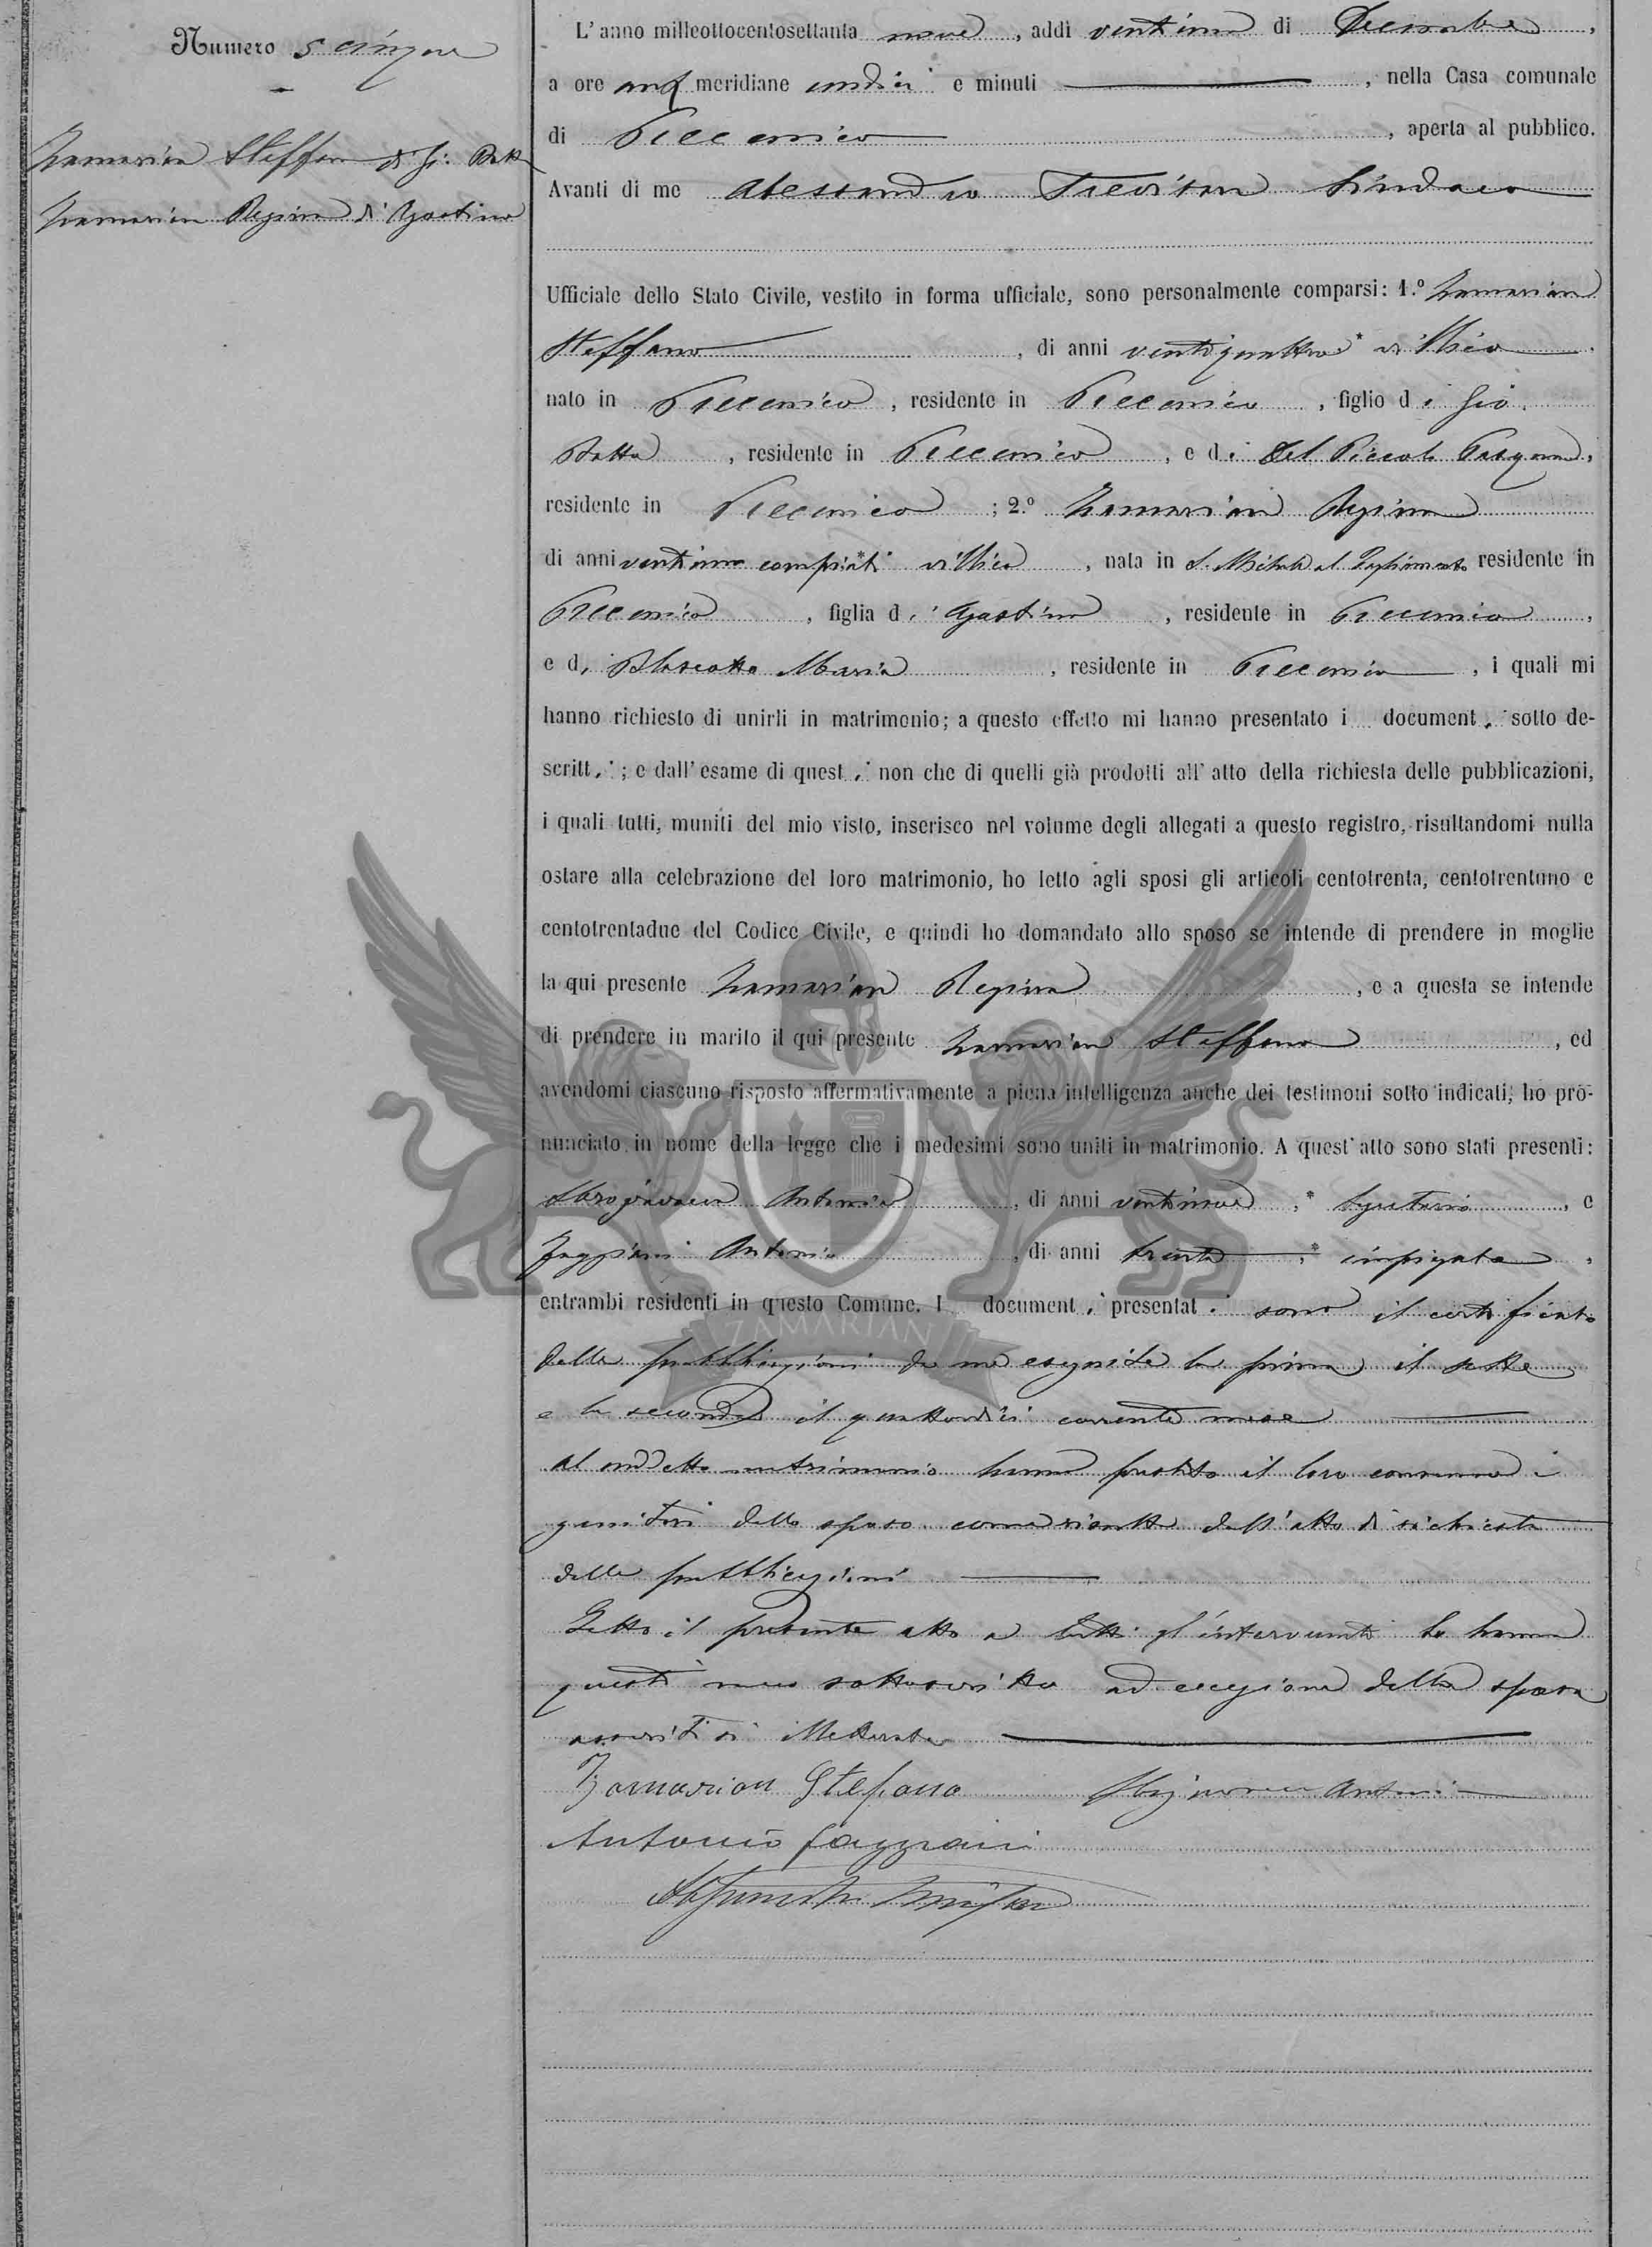 Numero 5 cinque
Zamarian Steffano di Gio: Batta
Zamarian Regina di Agostino
L'anno milleottocentosettanta nove, addì ventiuno di Decembre,
a ore ant meridiane undici e minuti, nella Casa comunale
di Precenico, aperta al pubblico.
Avanti di me Alessandro Trevisan Sindaco
Ufficiale dello Stato Civile, vestito in forma ufficiale, sono personalmente comparsi: 1.º Zamarian
Steffano, di anni ventiquattro * villico
nato in Precenico, residente in Precenico, figlio di Gio.
Batta, residente in Precenico, e di Del Piccolo Pasqua,
residente in Precenico; 2.º Zamarian Regina
di anni ventiuno compiuti * villica, nata in S. Michele al Tagliamento residente in
Precenico, figlia di Agostino, residente in Precenico,
e di Maria, residente in Precenico, i quali mi
hanno richiesto di unirli in matrimonio; a questo effetto mi hanno presentato i documenti sotto de-
scritti; e dall'esame di questi non che di quelli già prodotti all'atto della richiesta delle pubblicazioni,
i quali tutti, muniti del mio visto, inserisco nel volume degli allegati a questo registro, risultandomi nulla
ostare alla celebrazione del loro matrimonio, ho letto agli sposi gli articoli centotrenta, centotrentuno e
centotrentadue del Codice Civile, e quindi ho domandato allo sposo se intende di prendere in moglie
la qui presente Zamarian Regina, e a questa se intende
di prendere in marito il qui presente Zamarian Steffano, ed
avendomi ciascuno risposto affermativamente a piena intelligenza anche dei testimoni sotto indicati, ho pro-
nunciato in nome della legge che i medesimi sono uniti in matrimonio. A quest'atto sono stati presenti:
Sbrojavacca Antonio, di anni ventinove, * Segretario, e
Faggiani Antonio, di anni trenta, * impiegato,
entrambi residenti in questo Comune. I documenti presentati sono il certificato
ZAMARIAN
delle pubblicazioni da me eseguite la prima il sette
e la seconda il quattordici corrente mese
Al suddetto matrimonio hanno prestato il loro consenso i
genitori dello sposo come risulta dall'atto di richiesta
delle pubblicazioni
Letto il presente atto a tutti gl'intervenuti lo hanno
questi meco sottoscritto ad eccezione della sposa
asseritasi illetterata
Zamarian Stefano Antonio
Antonio Faggiani
Alessandro Trevisan